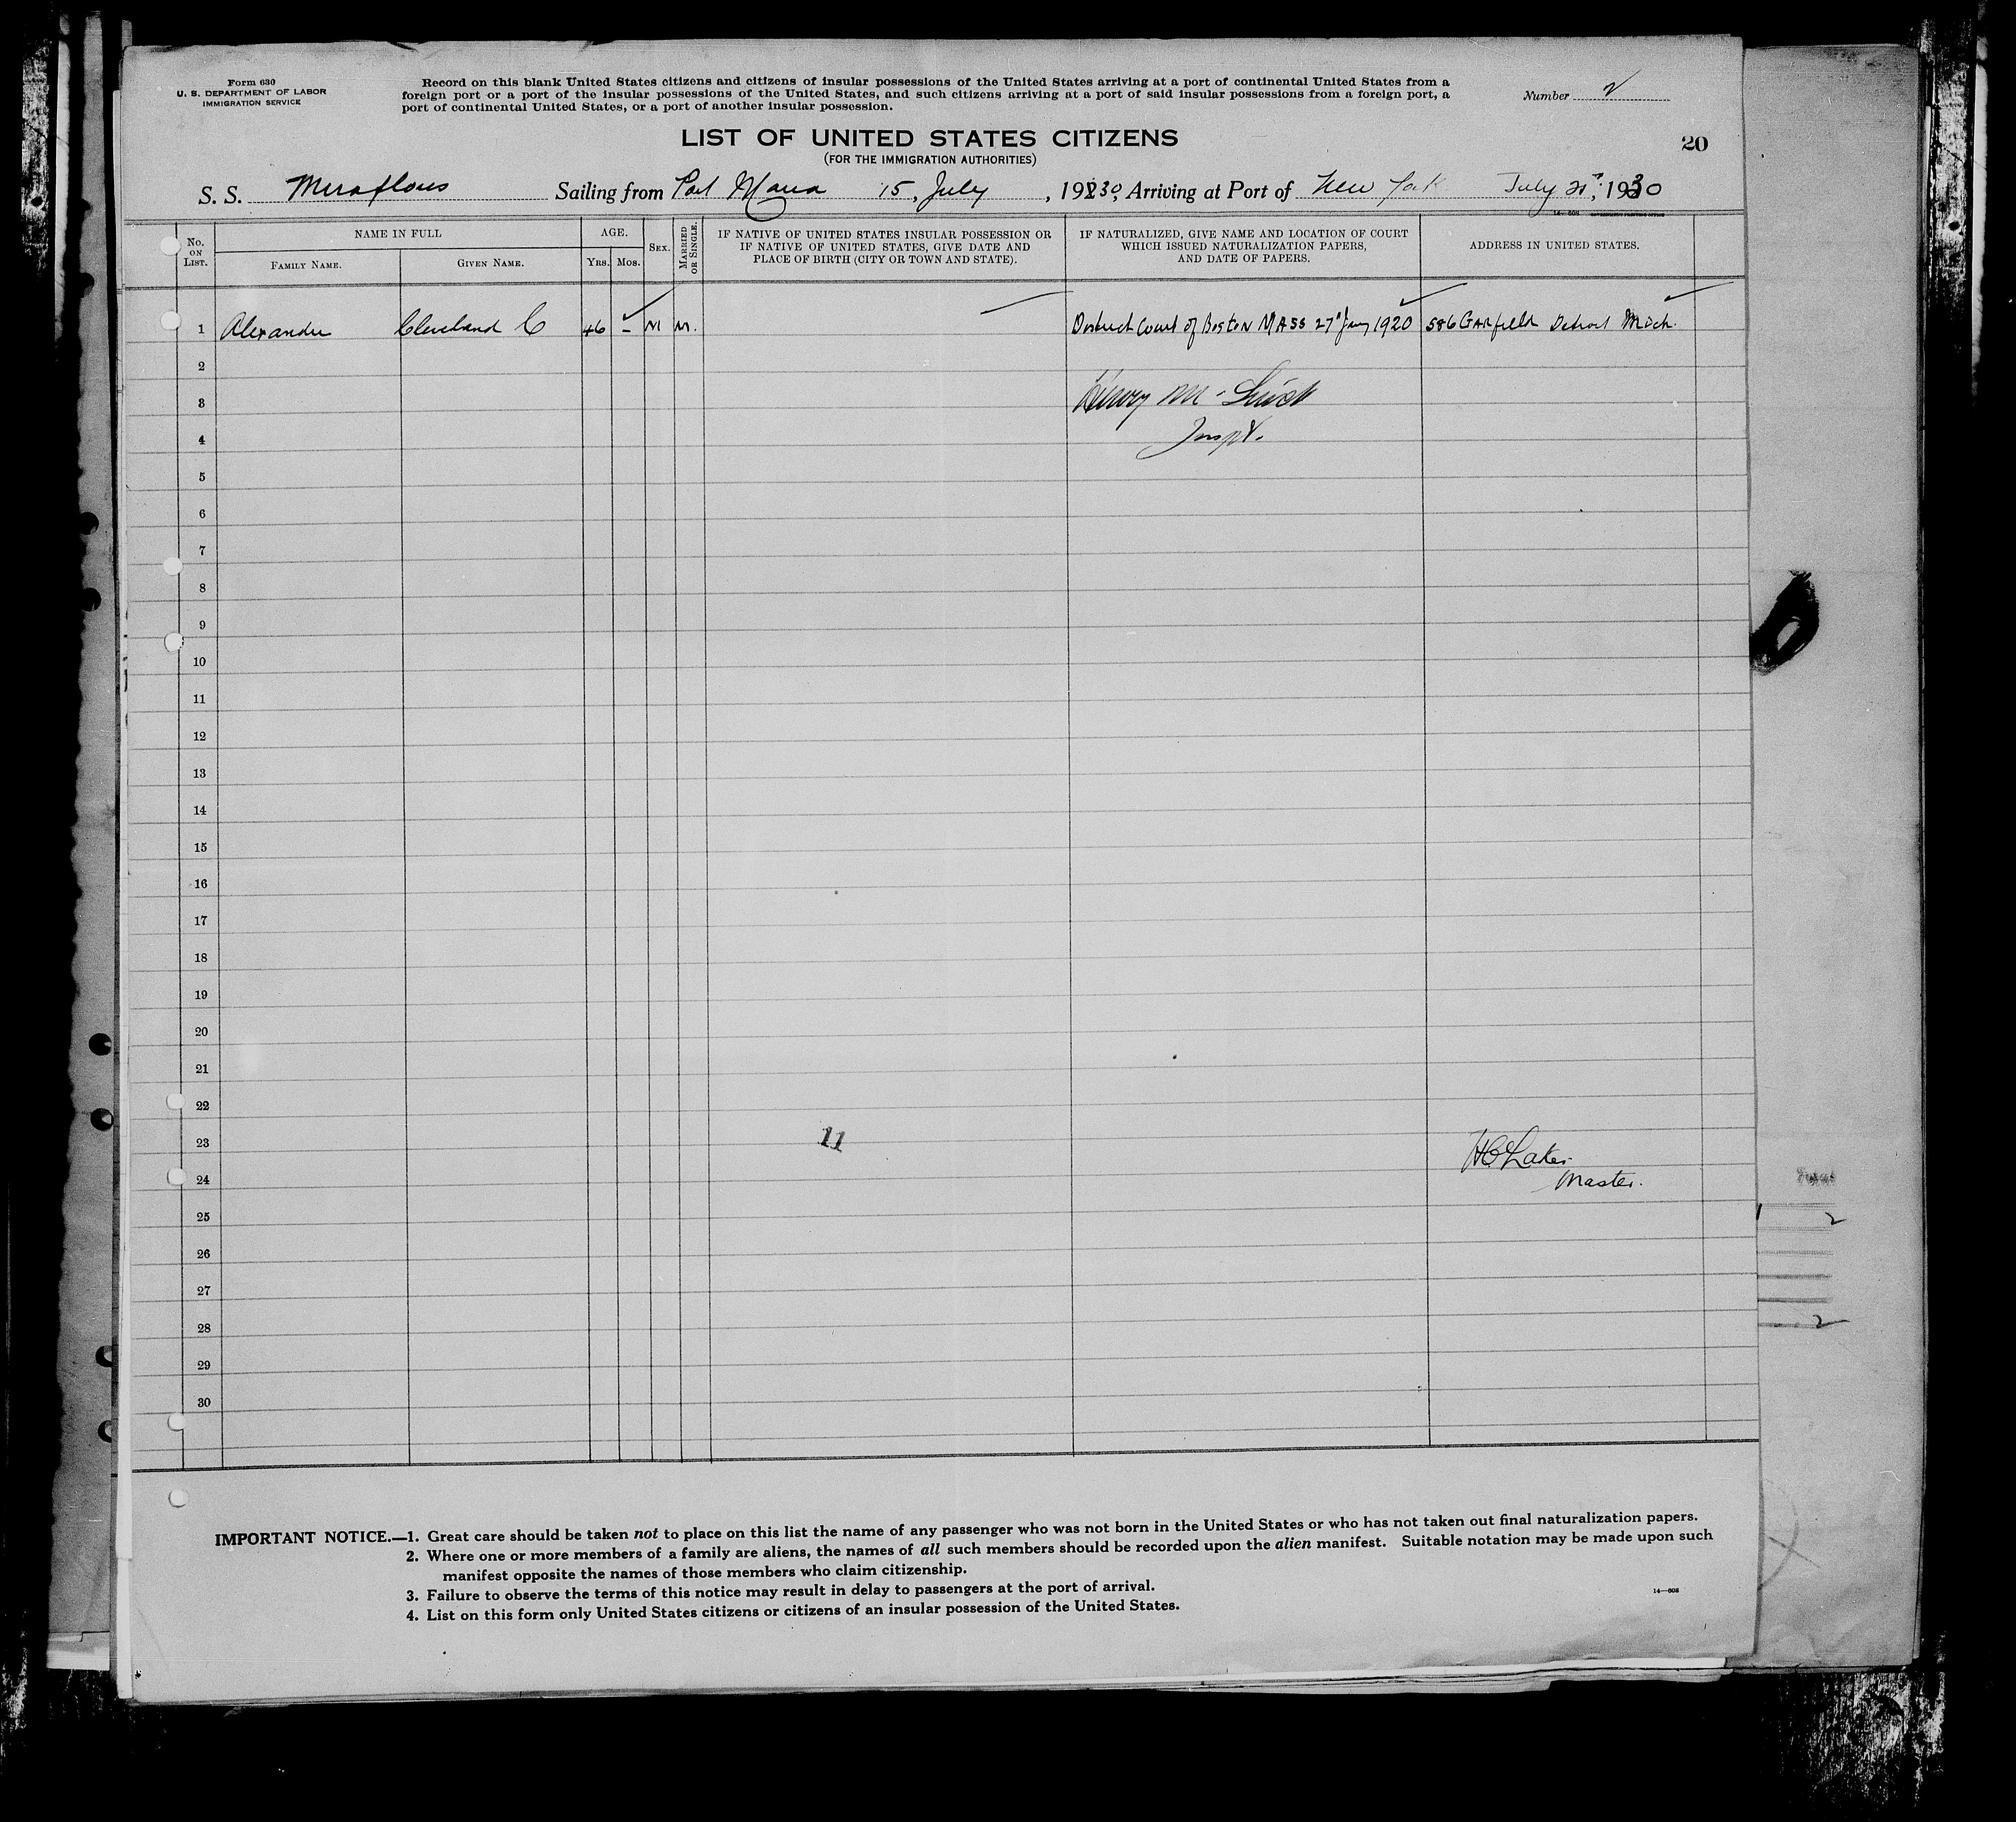 Form 630
U. S. DEPARTMENT OF LABOR
IMMIGRATION SERVICE
Record on this blank United States citizens and citizens of insular possessions of the United States arriving at a port of continental United States from a
foreign port or a port of the insular possessions of the United States, and such citizens arriving at a port of said insular possessions from a foreign port, a
port of continental United States, or a port of another insular possession.
Number 2
LIST OF UNITED STATES CITIZENS
20
(FOR THE IMMIGRATION AUTHORITIES)
S. S. Miraflores Sailing from Port Maria 15, July, 1930, Arriving at Port of New York July 21st, 1930
No. ON LIST. NAME IN FULL AGE. SEX. MARRIED OR SINGLE. IF NATIVE OF UNITED STATES INSULAR POSSESSION OR IF NATIVE OF UNITED STATES, GIVE DATE AND PLACE OF BIRTH (CITY OR TOWN AND STATE). IF NATURALIZED, GIVE NAME AND LOCATION OF COURT WHICH ISSUED NATURALIZATION PAPERS, AND DATE OF PAPERS. ADDRESS IN UNITED STATES.
FAMILY NAME. GIVEN NAME. YRS. MOS.
1 Alexander Cleveland C 46 - M M. District Court of Boston MASS 27" Jany 1920 586 Garfield Detroit Mich.
2
3 Henry Mc
4 Inspt.
5
6
7
8
9
10
11
12
13
14
15
16
17
18
19
20
21
22
23 11
24 Master.
25
26
27
28
29
30
IMPORTANT NOTICE.—1. Great care should be taken not to place on this list the name of any passenger who was not born in the United States or who has not taken out final naturalization papers.
2. Where one or more members of a family are aliens, the names of all such members should be recorded upon the alien manifest. Suitable notation may be made upon such
manifest opposite the names of those members who claim citizenship.
3. Failure to observe the terms of this notice may result in delay to passengers at the port of arrival.
14—608
4. List on this form only United States citizens or citizens of an insular possession of the United States.